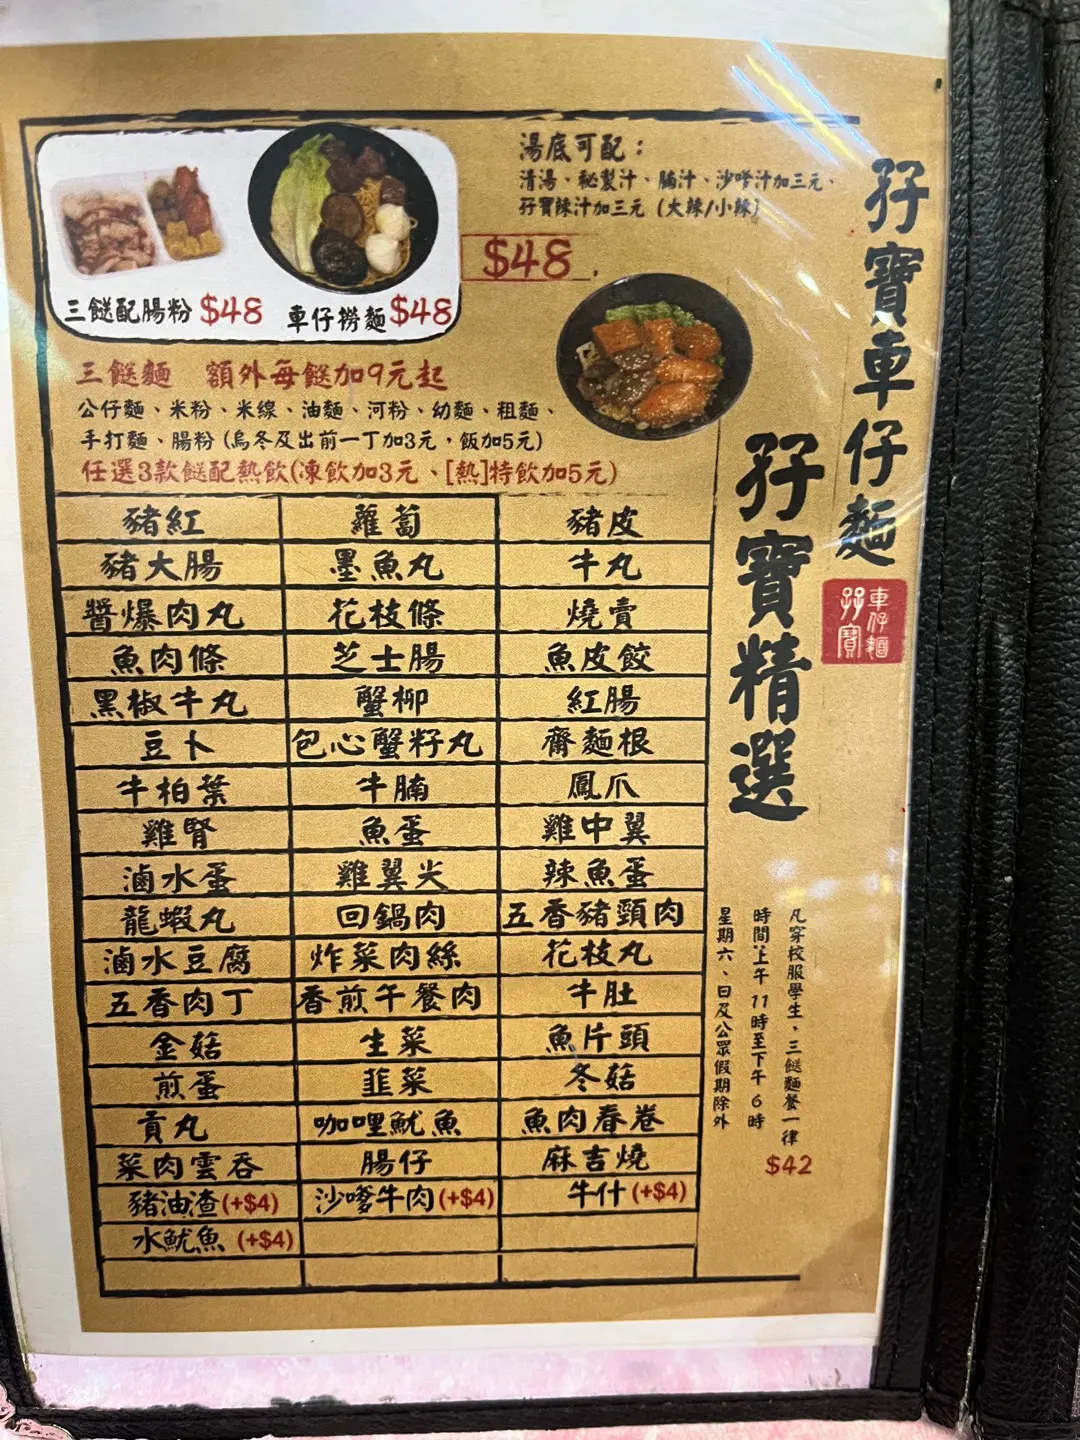 孖寶車仔麵
孖寶精選
孖寶
車仔麵
湯底可配：
清湯、秘製汁、腩汁、沙嗲汁加三元、
孖寶辣汁加三元（大辣/小辣）
$48
三餸配腸粉 $48
車仔撈麵 $48
三餸麵 額外每餸加9元起
公仔麵、米粉、米線、油麵、河粉、幼麵、粗麵、
手打麵、腸粉 (烏冬及出前一丁加3元，飯加5元)
任選3款餸配熱飲(凍飲加3元、[熱]特飲加5元)
豬紅 蘿蔔 豬皮
豬大腸 墨魚丸 牛丸
醬爆肉丸 花枝條 燒賣
魚肉條 芝士腸 魚皮餃
黑椒牛丸 蟹柳 紅腸
豆卜 包心蟹籽丸 齋麵根
牛柏葉 牛腩 鳳爪
雞腎 魚蛋 雞中翼
滷水蛋 雞翼尖 辣魚蛋
龍蝦丸 回鍋肉 五香豬頸肉
滷水豆腐 炸菜肉絲 花枝丸
五香肉丁 香煎午餐肉 牛肚
金菇 生菜 魚片頭
煎蛋 韮菜 冬菇
貢丸 咖哩魷魚 魚肉春卷
菜肉雲吞 腸仔 麻吉燒
豬油渣(+$4) 沙嗲牛肉(+$4) 牛什(+$4)
水魷魚 (+$4)
凡穿校服學生，三餸麵餐一律
$42
時間：上午 11 時至下午 6 時
星期六、日及公眾假期除外